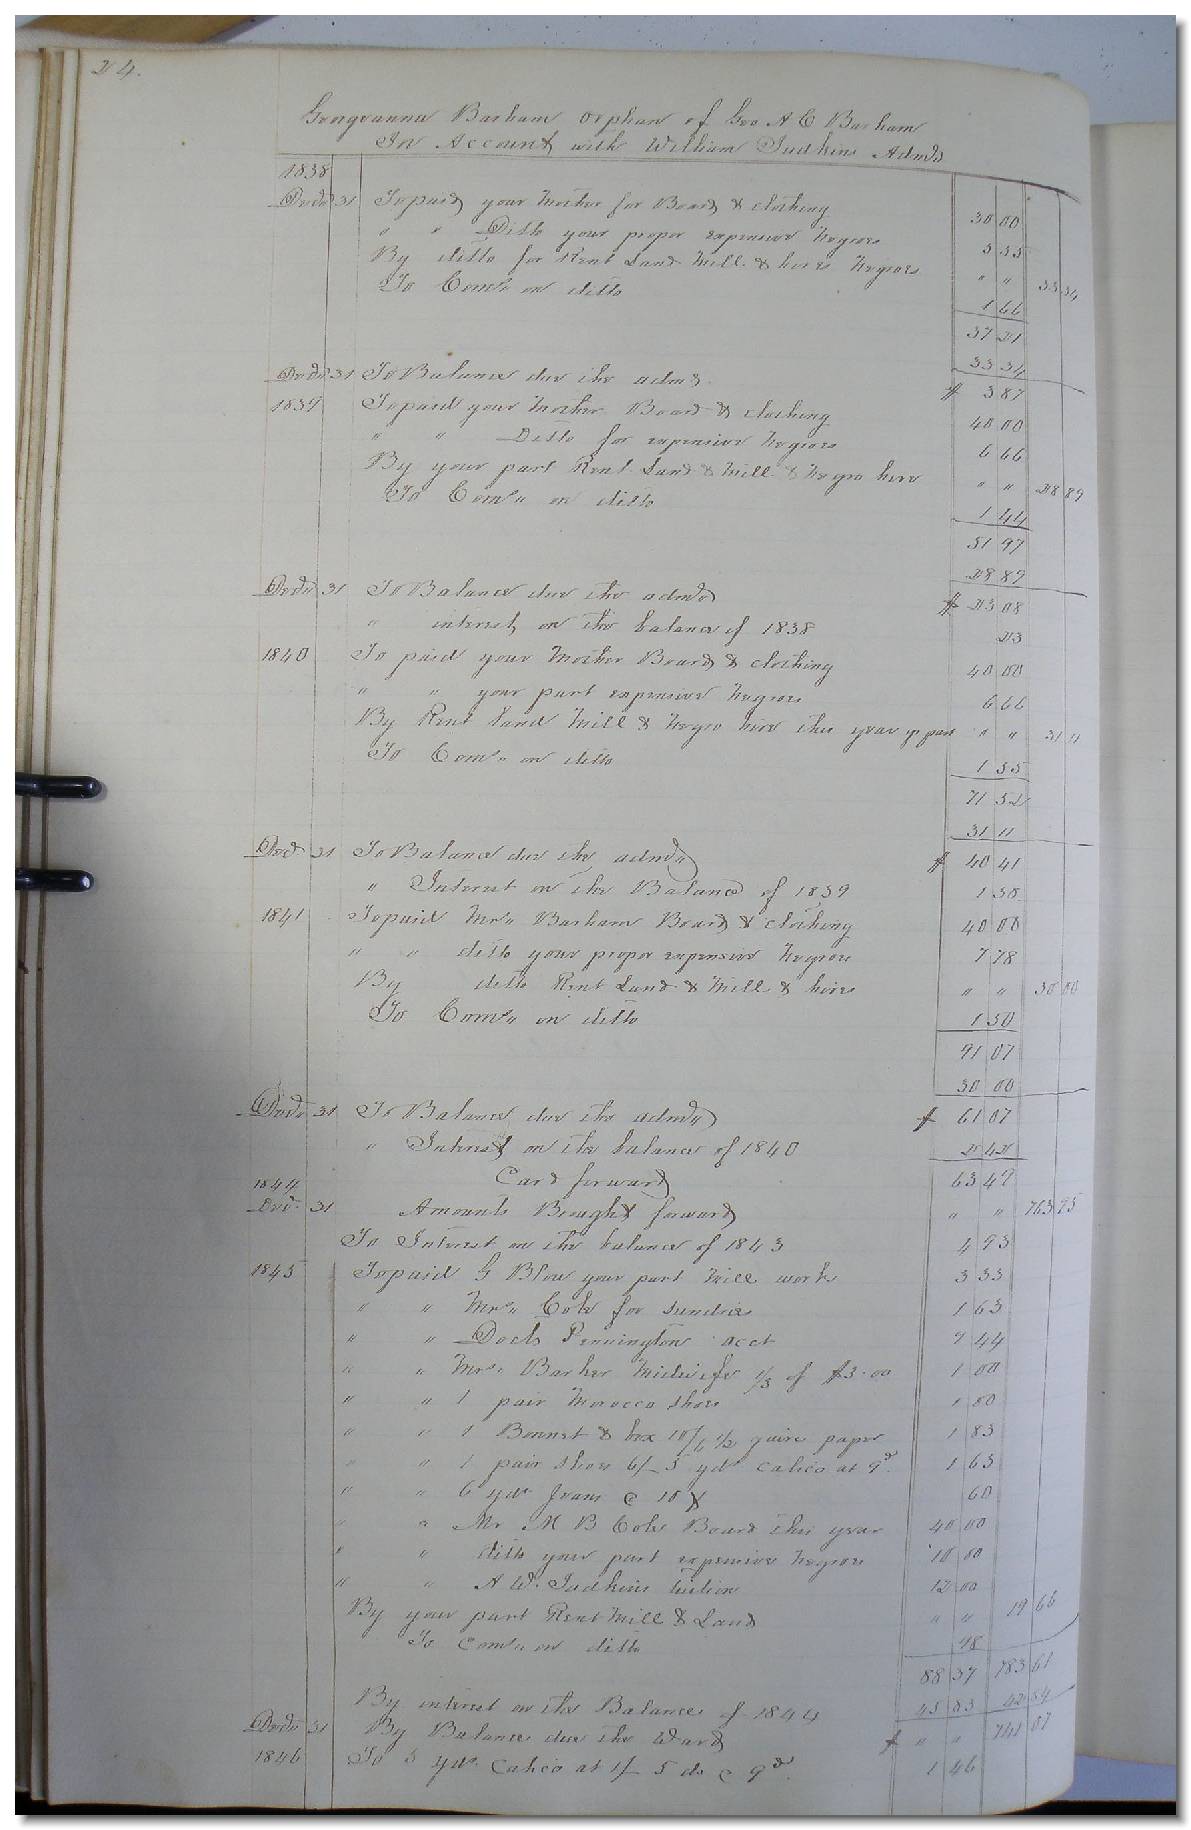 24.
Georgeanna Barham orphan of Geo A C Barham
In Account with William Judkins Admr
1838
Decr 31 To paid your Mother for Board & clothing 30 00
" " Ditto your proper expensive Negroes 5 55
By ditto for Rent Land Mill & hires Negroes " " 33 34
To Coms" on ditto 1 66
37 21
33 34
Decr 31 To Balance due the admr $ 3 87
1839 To paid your Mother Board & clothing 40 00
" " Ditto for expensive Negroes 6 66
By your part Rent Land & Mill & Negro hire " " 28 89
To Coms" on ditto 1 44
51 97
28 89
Decr 31 To Balance due the admr $ 23 08
" interest on the balance of 1838 23
1840 To paid your Mother Board & clothing 40 00
" " your part expensive Negroes 6 66
By Rent Land Mill & Negro hire this year yr part " " 31 11
To Coms" on ditto 1 55
71 52
31 11
Decr 31 To Balance due the admr $ 40 41
" Interest on the Balance of 1839 1 38
1841 To paid Mrs" Barham Board & clothing 40 00
" " ditto your proper expensive Negroes 7 78
By ditto Rent Land & Mill & hires " " 30 00
To Coms" on ditto 1 50
91 07
30 00
Decr 31 To Balance due the admr $ 61 07
" Interest on the balance of 1840 2 42
Card forward 63 49
1844
Decr 31 Amounts Brought forward " " 763 95
To Interest on the balance of 1843 4 93
1845 To paid G Blow your part Mill work 3 33
" " Mrs" Cole for sundries 1 63
" " Docts Pennington acct 9 44
" " Mrs" Barker Midwife 1/3 of $3.00 1 00
" " 1 pair Morocco shoes 1 00
" " 1 Bonnet & box 10/6 1/2 quire paper 1 83
" " 1 pair shoes 6/- 5 yds calico at 9d. 1 63
" " 6 yds Jeans @ 10 60
" " Mr M B Cole Board this year 40 00
" " ditto your part expensive Negroes 10 00
" " A W. Judkins tuition 12 00
By your part Rent Mill & Land " " 19 66
To Coms" on ditto 98
88 37 783 61
By interest on the Balance of 1844 45 83 42 54
Decr 31 By Balance due the Ward $ " " 741 07
1846 To 5 yds calico at 1/- 5 do @ 9d. 1 46